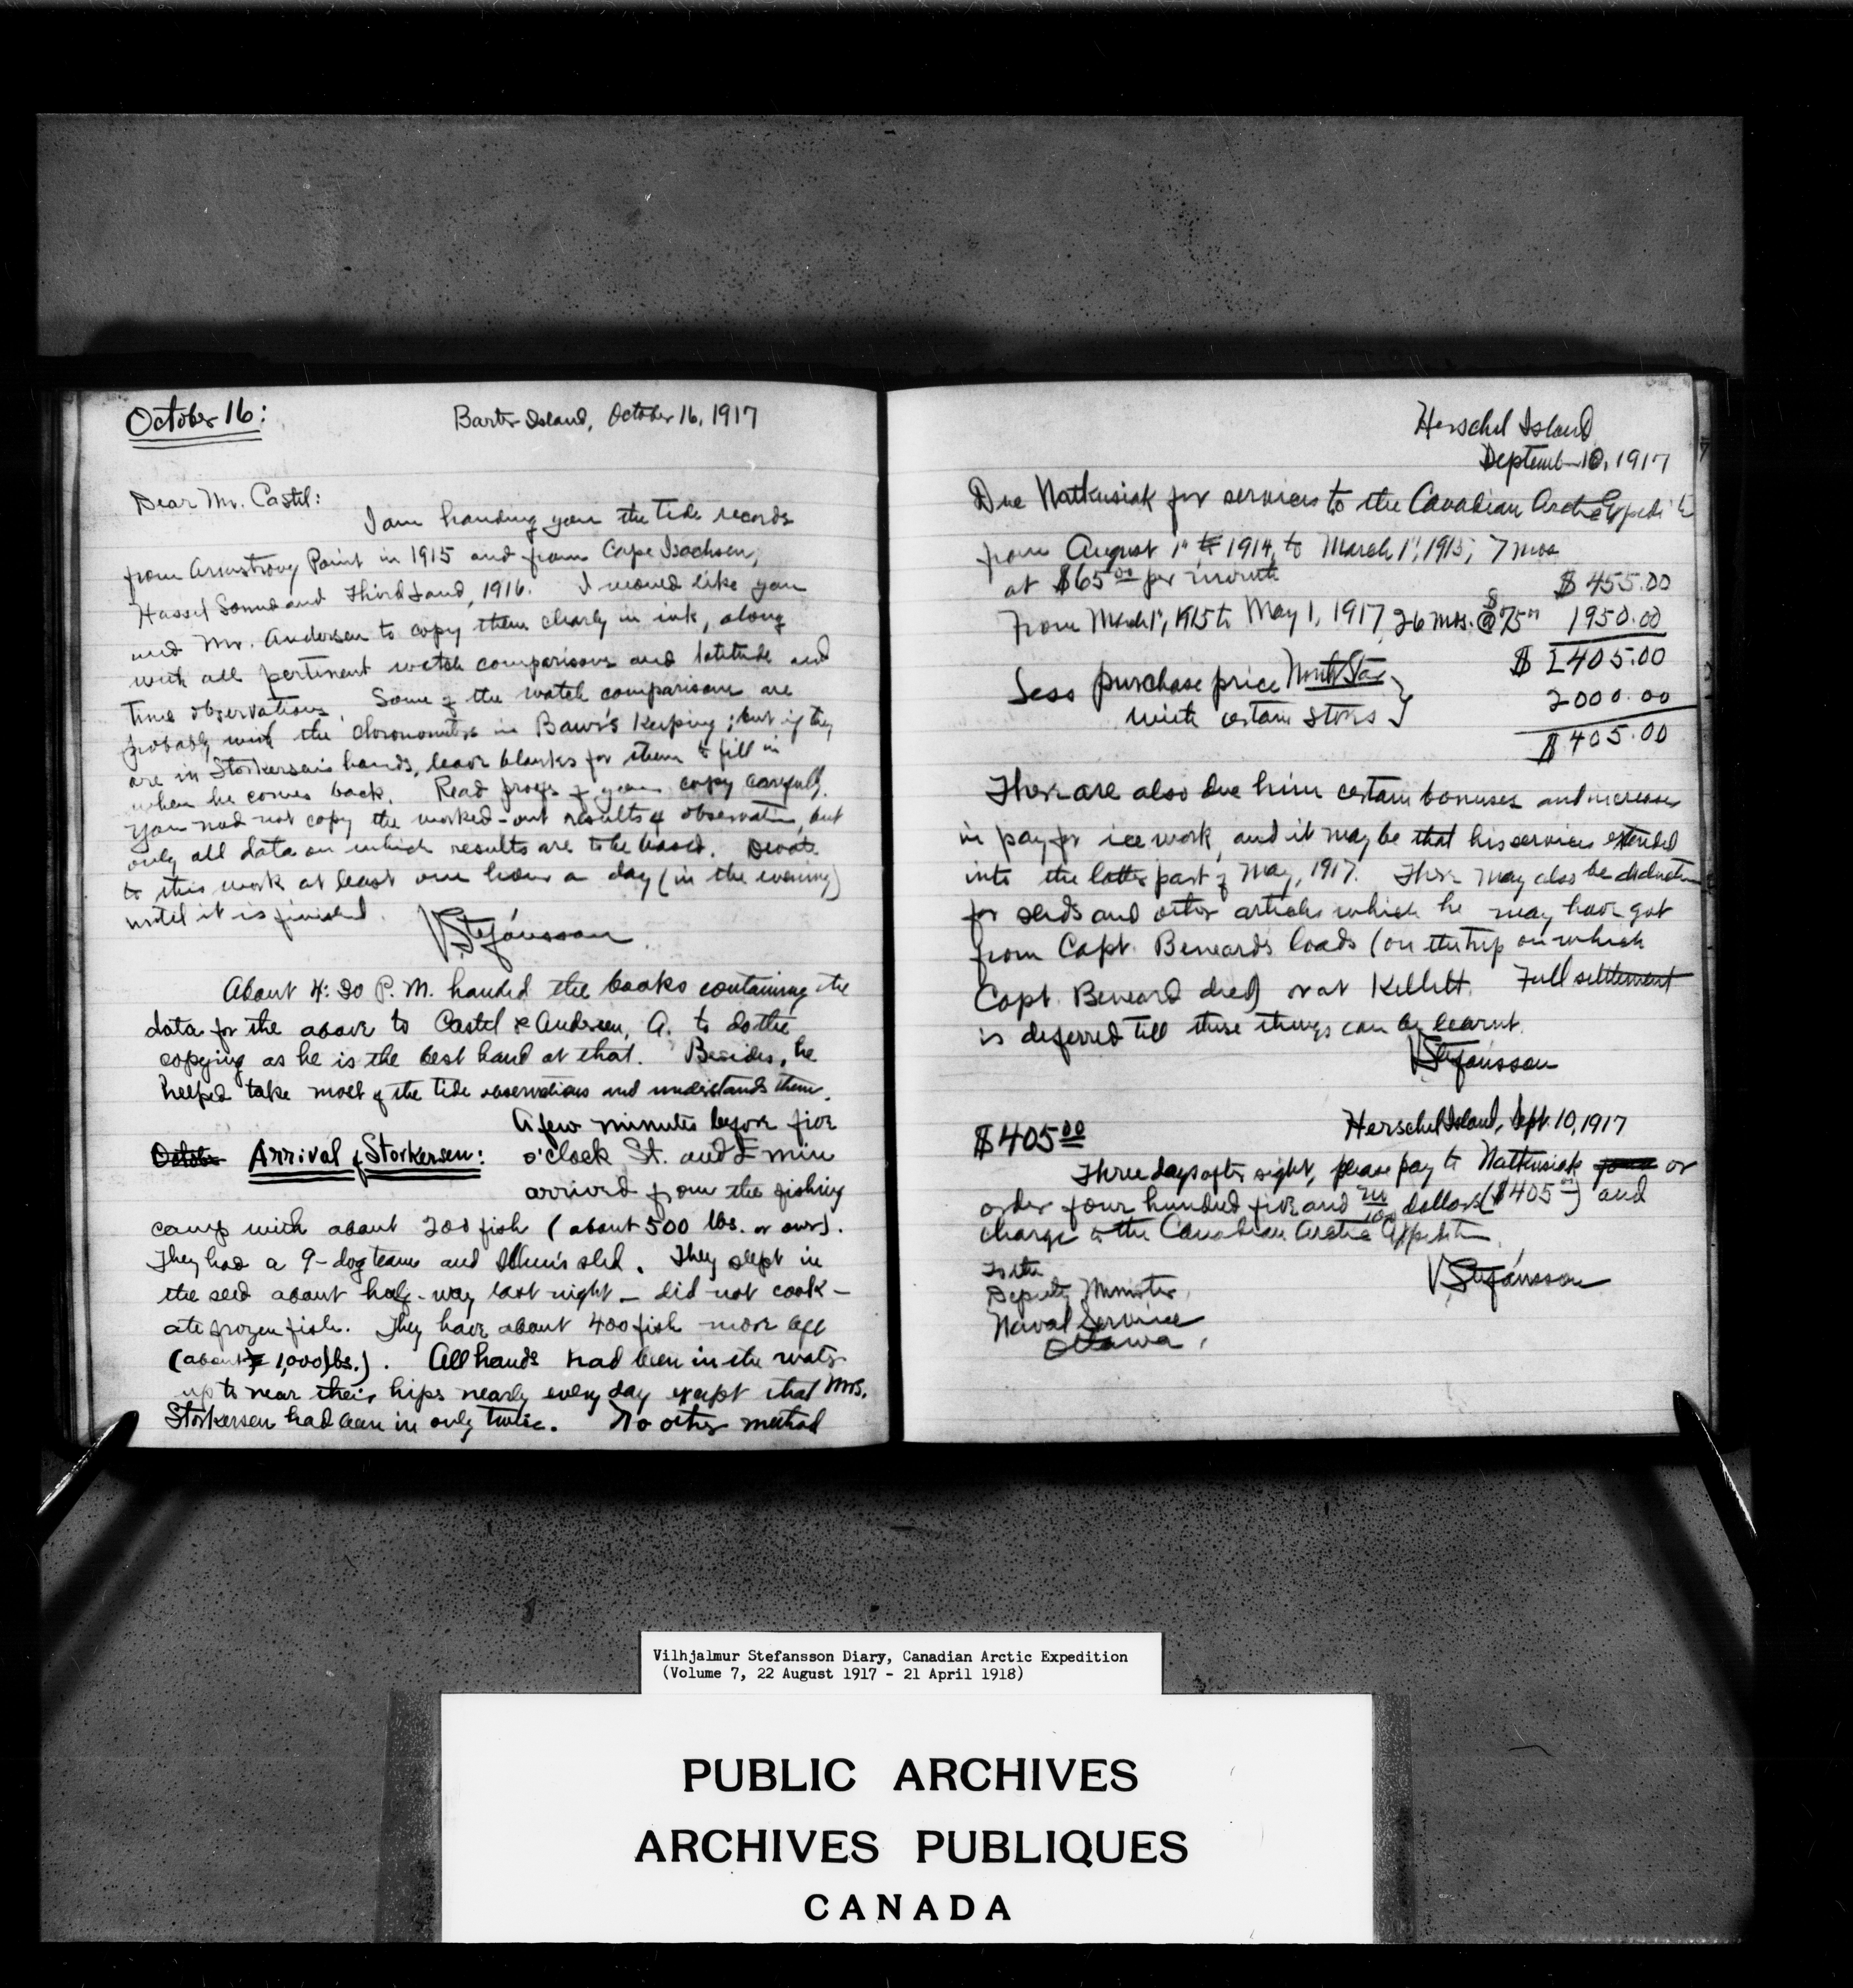 October 16:
Barter Island, October 16, 1917
Dear Mr. Castel:
I am handing you the tide records
from Armstrong Point in 1915 and from Cape Isachsen,
Hassel Sound and Third Land, 1916. I would like you
and Mr. Andersen to copy them clearly in ink, along
with all pertinent watch comparisons and latitude and
time observations. Some of the watch comparisons are
probably with the chronometers in Baur's keeping; but if they
are in Storkersen's hands, leave blanks for them to fill in
when he comes back. Read proofs of your copy carefully.
You need not copy the worked-out results of observation, but
only all data on which results are to be based. Devote
to this work at least one hour a day (in the evening)
until it is finished.
VStefánsson
About 4:30 P. M. handed the books containing the
data for the above to Castel & Andreen, A. to do the
copying as he is the best hand at that. Besides, he
helped take most of the tide observations and understands them.
A few minutes before five
October Arrival of Storkersen: o'clock St. and Emiu
arrived from the fishing
camp with about 200 fish (about 500 lbs. or over).
They had a 9-dog team and sled. They slept in
the sled about half-way last night – did not cook –
ate frozen fish. They have about 400 fish more
(about 1,000 lbs.). All hands had been in the water
up to near their hips nearly every day except that Mrs.
Storkersen had been in only twice. No other method
Herschel Island
September 10, 1917
Due Natkusiak for services to the Canadian Arctic Expedition
from August 1st to 1914, to March 1st, 1915, 7 mos
at $65.00 per month $455.00
From March 1st, 1915 to May 1, 1917, 26 mos. @ $75.00 1950.00
$ 2405.00
Less purchase price North Star }
with certain stores 2000.00
$ 405.00
There are also due him certain bonuses and increases
in pay for ice work, and it may be that his services extended
into the latter part of May, 1917. There may also be deductions
for sleds and other articles which he may have got
from Capt. Bernard's loads (on the trip on which
Capt. Bernard died) or at Kellett. Full settlement
is deferred till these things can be learnt.
VStefánsson
$405.00
Herschel Island, Sept. 10, 1917
Three days after sight, please pay to Natkusiak or
order four hundred five and no/100 dollars ($405.00) and
charge to the Canadian Arctic Expedition.
To the
Deputy Minister,
Naval Service
Ottawa,
VStefánsson
Vilhjalmur Stefansson Diary, Canadian Arctic Expedition
(Volume 7, 22 August 1917 - 21 April 1918)
PUBLIC ARCHIVES
ARCHIVES PUBLIQUES
CANADA